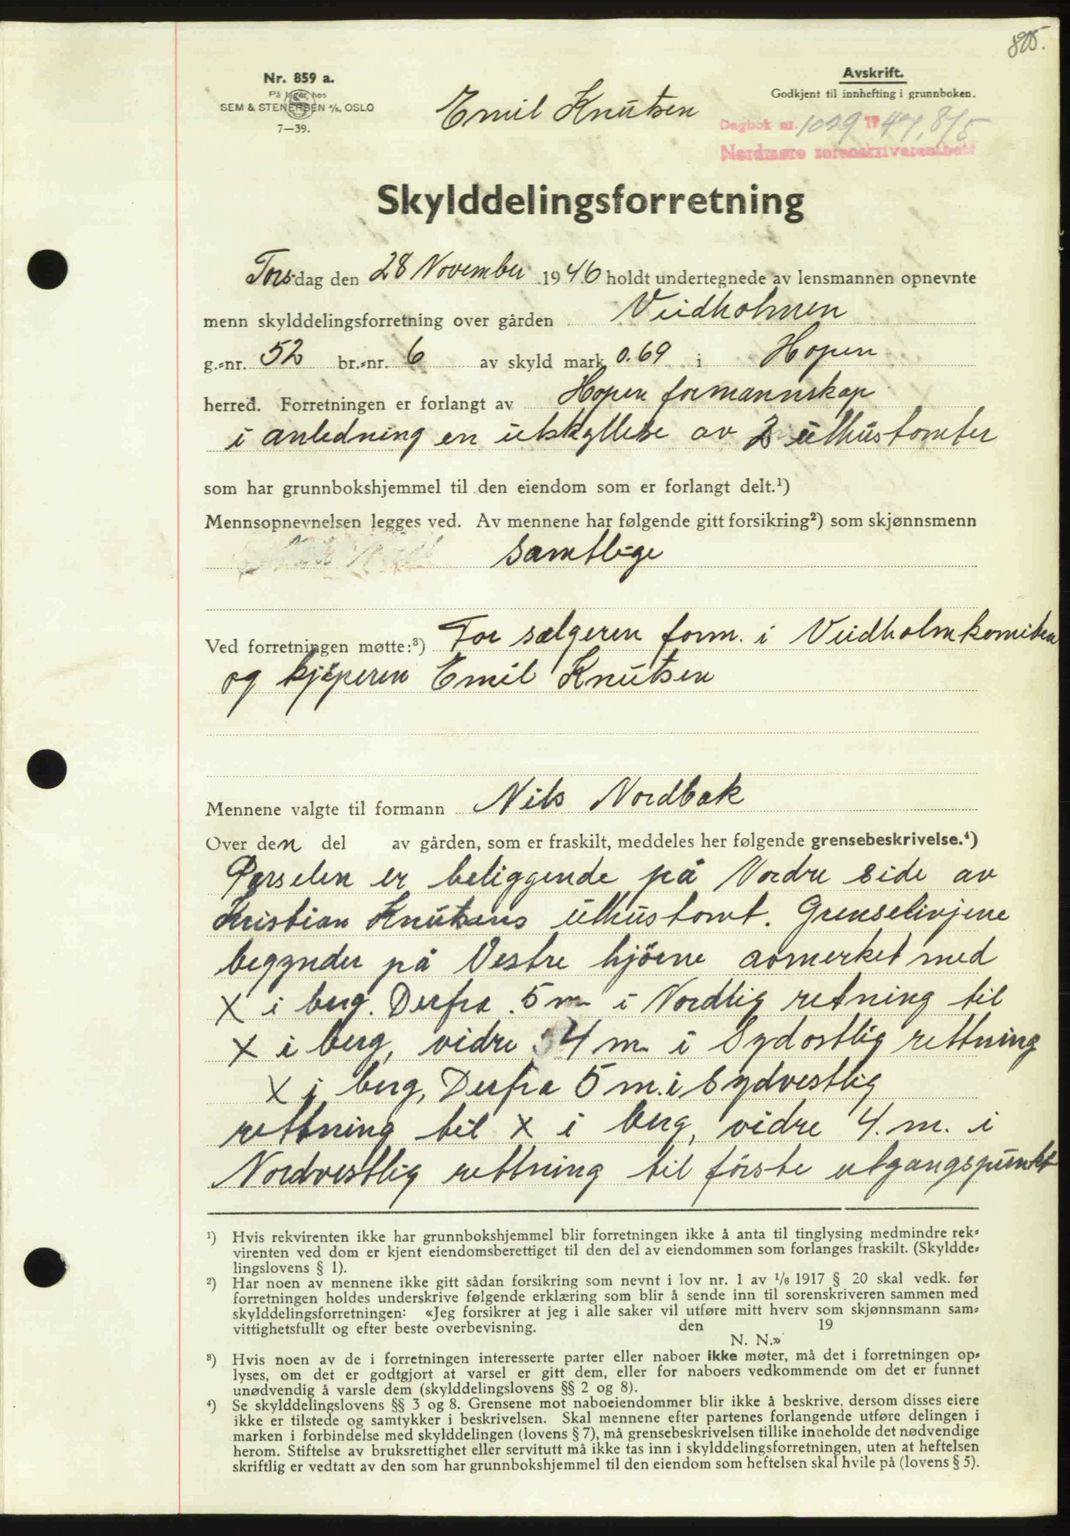 805.
Nr. 859 a.
På lager hos
SEM & STENERSEN A/S, OSLO
7—39.
Emil Knutsen
Avskrift.
Godkjent til innhefting i grunnboken.
Dagbok nr. 1029 1947, 8/5
Nordmøre sorenskriverembete
Skylddelingsforretning
Torsdag den 28 November 1946 holdt undertegnede av lensmannen opnevnte
menn skylddelingsforretning over gården Veidholmen
g.-nr. 52 br.-nr. 6 av skyld mark 0.69 i Hopen
herred. Forretningen er forlangt av Hopen formannskap
i anledning en utskyllese av 2 uthustomter
som har grunnbokshjemmel til den eiendom som er forlangt delt.¹)
Mennsopnevnelsen legges ved. Av mennene har følgende gitt forsikring²) som skjønnsmenn
samtlige
Ved forretningen møtte:³) For sælgeren form. i Veidholmkomiteen
og kjøperen Emil Knutsen
Mennene valgte til formann Nils Nordbak
Over den del av gården, som er fraskilt, meddeles her følgende grensebeskrivelse.⁴)
Parselen er beliggende på Nordre side av
Kristian Knutsens uthustomt. Grenselinjene
begynder på Vestre hjörne avmerket med
X i berg. Derfra 5 m i Nordlig retning til
X i berg, vidre 4 m i Sydostlig rettning
X i berg, Derfra 5 m. i Sydvestlig
rettning til X i berg, vidre 4. m. i
Nordvestlig rettning til förste utgangspunkt
¹) Hvis rekvirenten ikke har grunnbokshjemmel blir forretningen ikke å anta til tinglysing medmindre rek-
virenten ved dom er kjent eiendomsberettiget til den del av eiendommen som forlanges fraskilt. (Skyldde-
lingslovens § 1).
²) Har noen av mennene ikke gitt sådan forsikring som nevnt i lov nr. 1 av 1/6 1917 § 20 skal vedk. før
forretningen holdes underskrive følgende erklæring som blir å sende inn til sorenskriveren sammen med
skylddelingsforretningen: «Jeg forsikrer at jeg i alle saker vil utføre mitt hverv som skjønnsmann sam-
vittighetsfullt og efter beste overbevisning. den 19
N. N.»
³) Hvis noen av de i forretningen interesserte parter eller naboer ikke møter, må det i forretningen op-
lyses, om det er godtgjort at varsel er gitt dem, eller for naboers vedkommende om det er funnet
unødvendig å varsle dem (skylddelingslovens §§ 2 og 8).
⁴) Se skylddelingslovens §§ 3 og 8. Grensene mot naboeiendommer blir ikke å beskrive, dersom disses eiere
ikke er tilstede og samtykker i beskrivelsen. Skal mennene efter partenes forlangende utføre delingen i
marken i forbindelse med skylddelingen (lovens § 7), må grensebeskrivelsen tillike inneholde det nødvendige
herom. Stiftelse av bruksrettighet eller servitutt må ikke tas inn i skylddelingsforretningen, uten at heftelsen
skriftlig er vedtatt av den som har grunnbokshjemmel til den eiendom som heftelsen skal hvile på (lovens § 5).